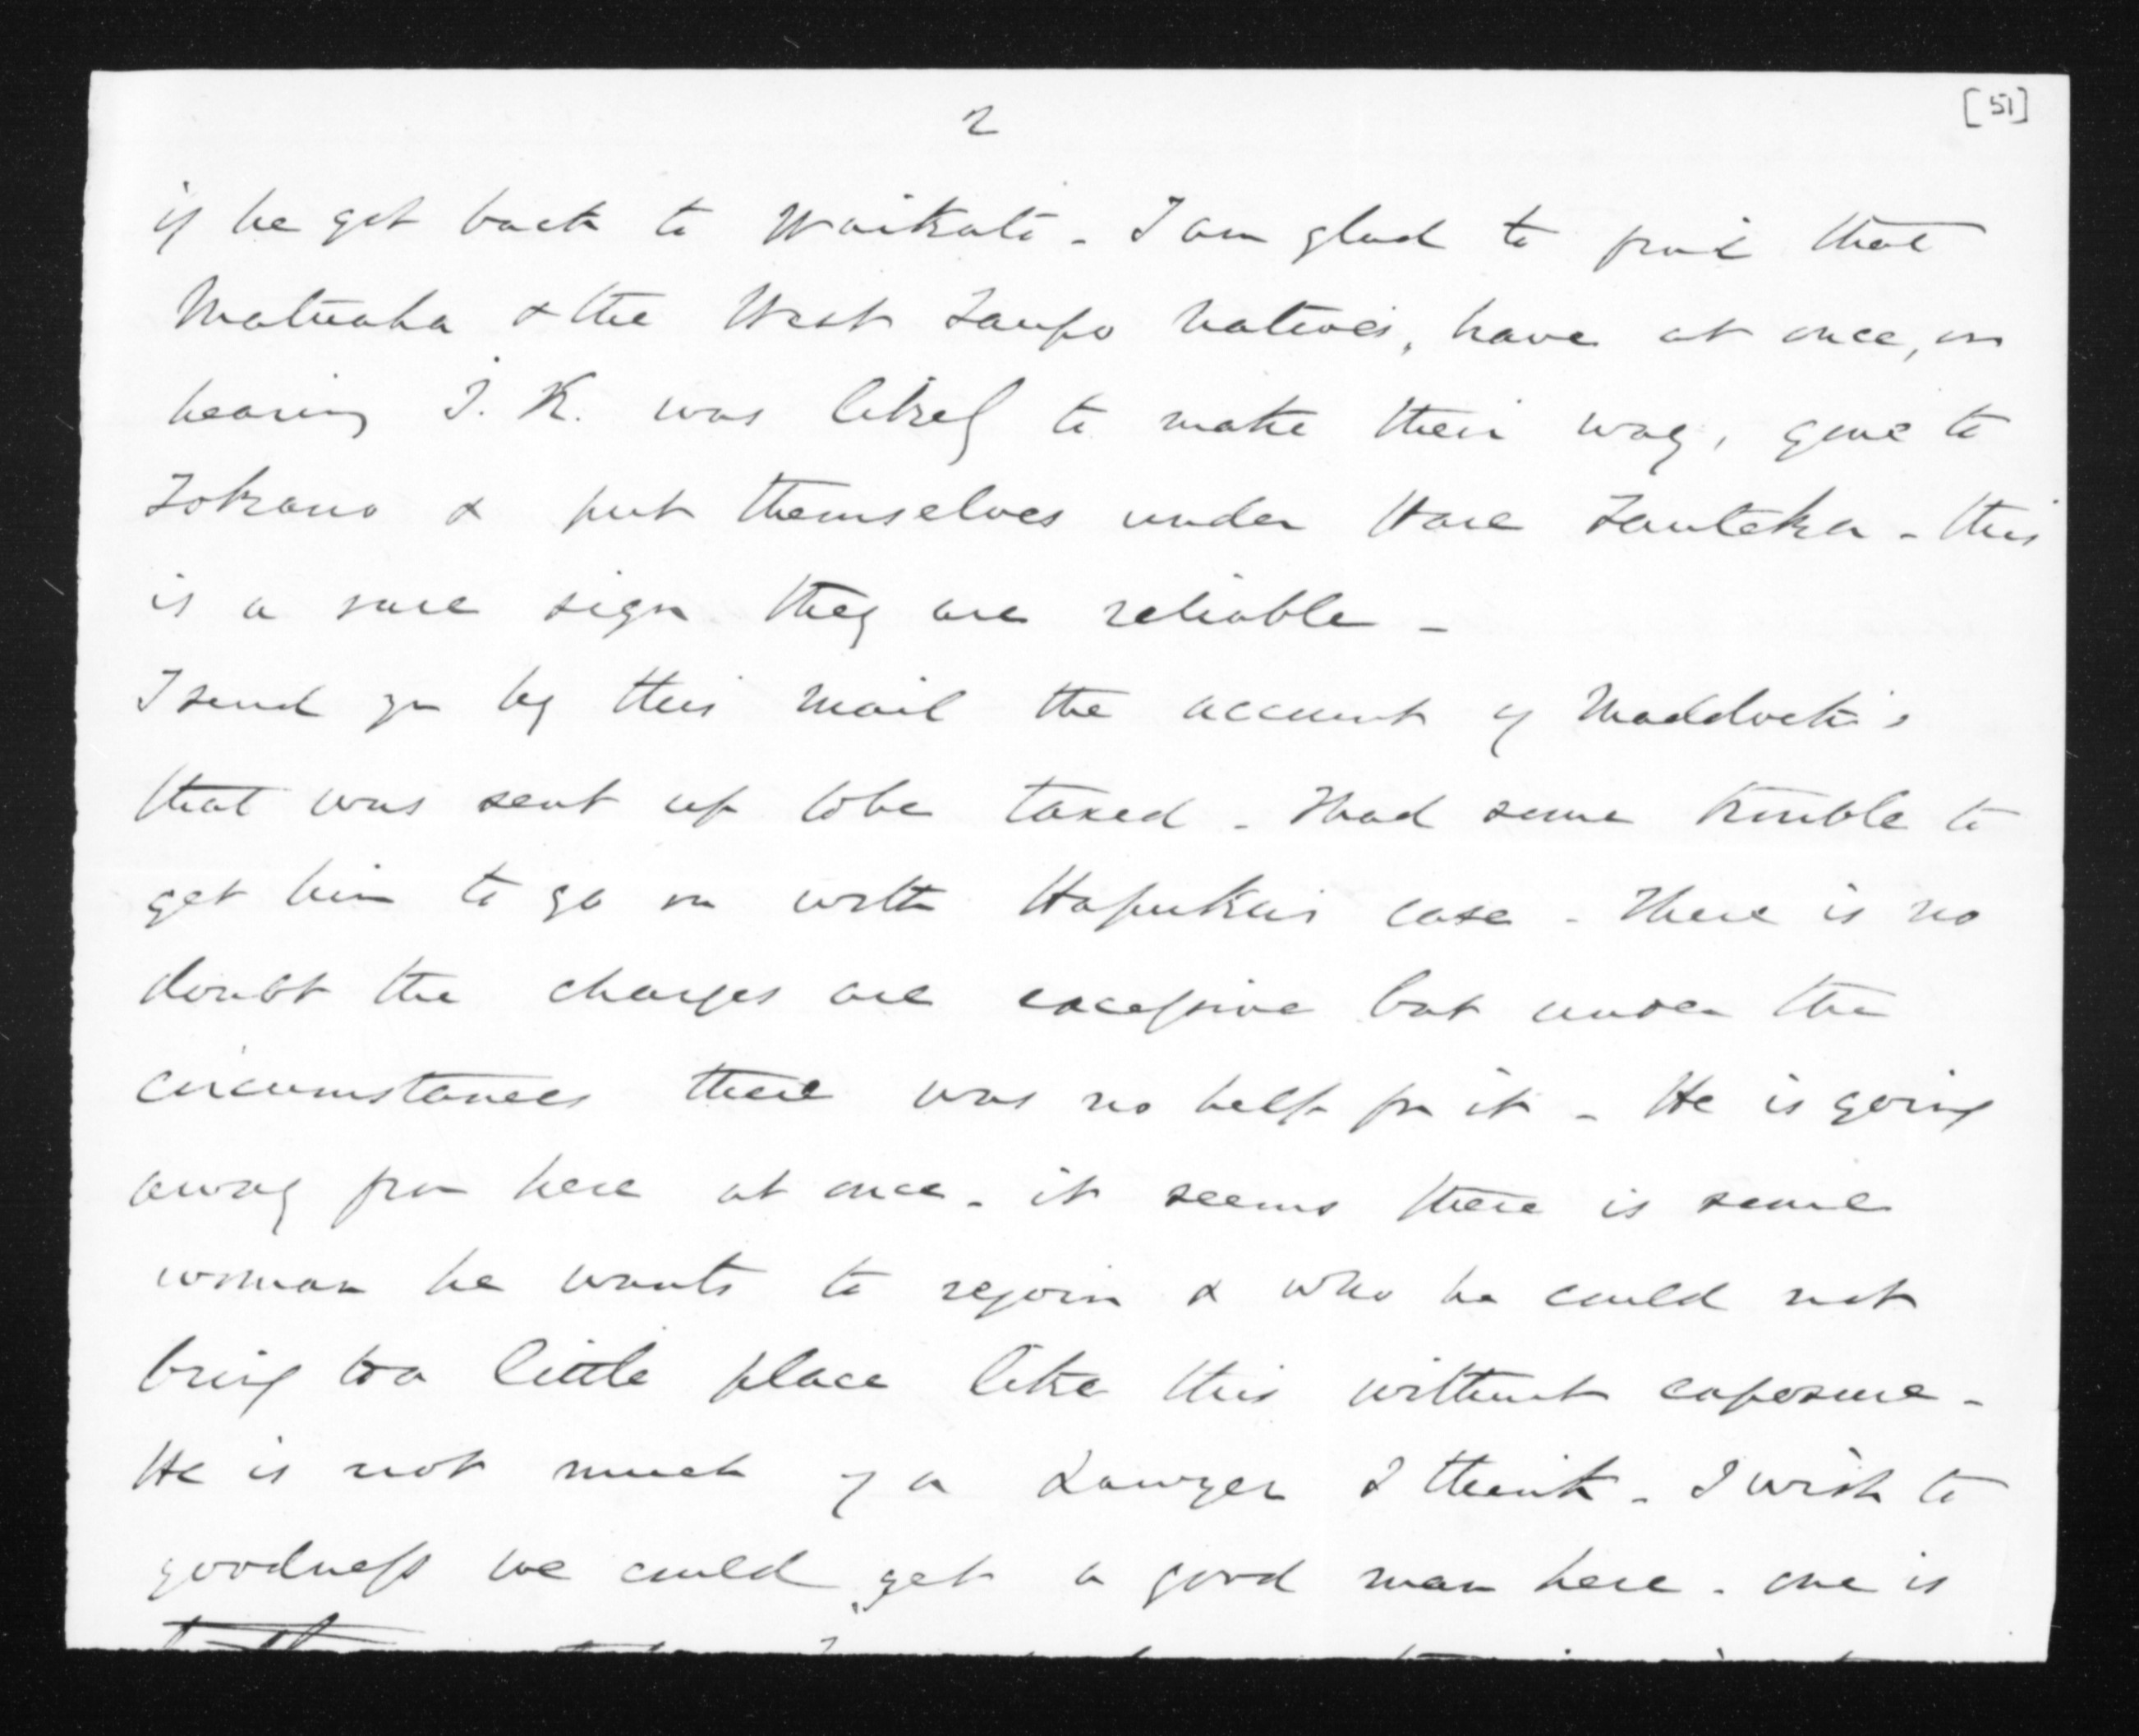 [51]
2
if he get back to Waikato - I am glad to find that
Matuaha & the West Taupo Natives, have at once, on
hearing T. K. was likely to make their way, gone to
Tokano & put themselves under Hare Tauteka - this
is a sure sign they are reliable -
I send you by this mail the account of Maddock's
that was sent up to be taxed - I had some trouble to
get him to go on with Hapuku's case - There is no
doubt the charges are excessive but under the
circumstances there was no help for it - He is going
away from here at once - it seems there is some
woman he wants to rejoin & who he could not
bring to a little place like this without exposure -
He is not much of a Lawyer I think - I wish to
goodness we could get a good man here - one is